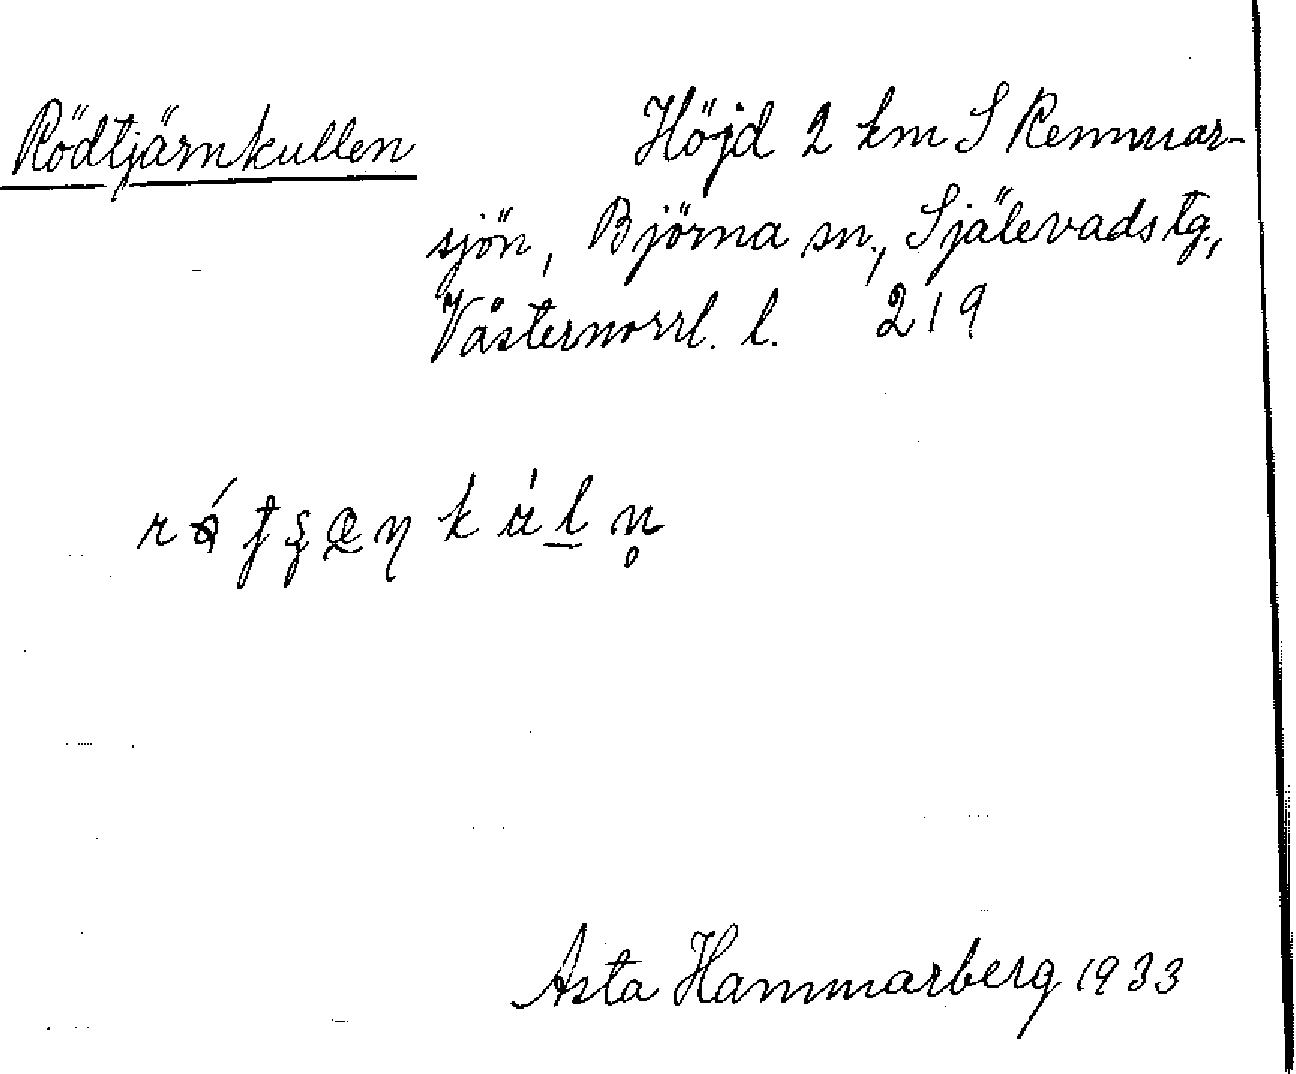 Rödtjärnkullen Höjd 2 km S Remmar-
sjön, Björna sn., Själevads tg.,
Västernorrl. l. 219
Asta Hammarberg 1933